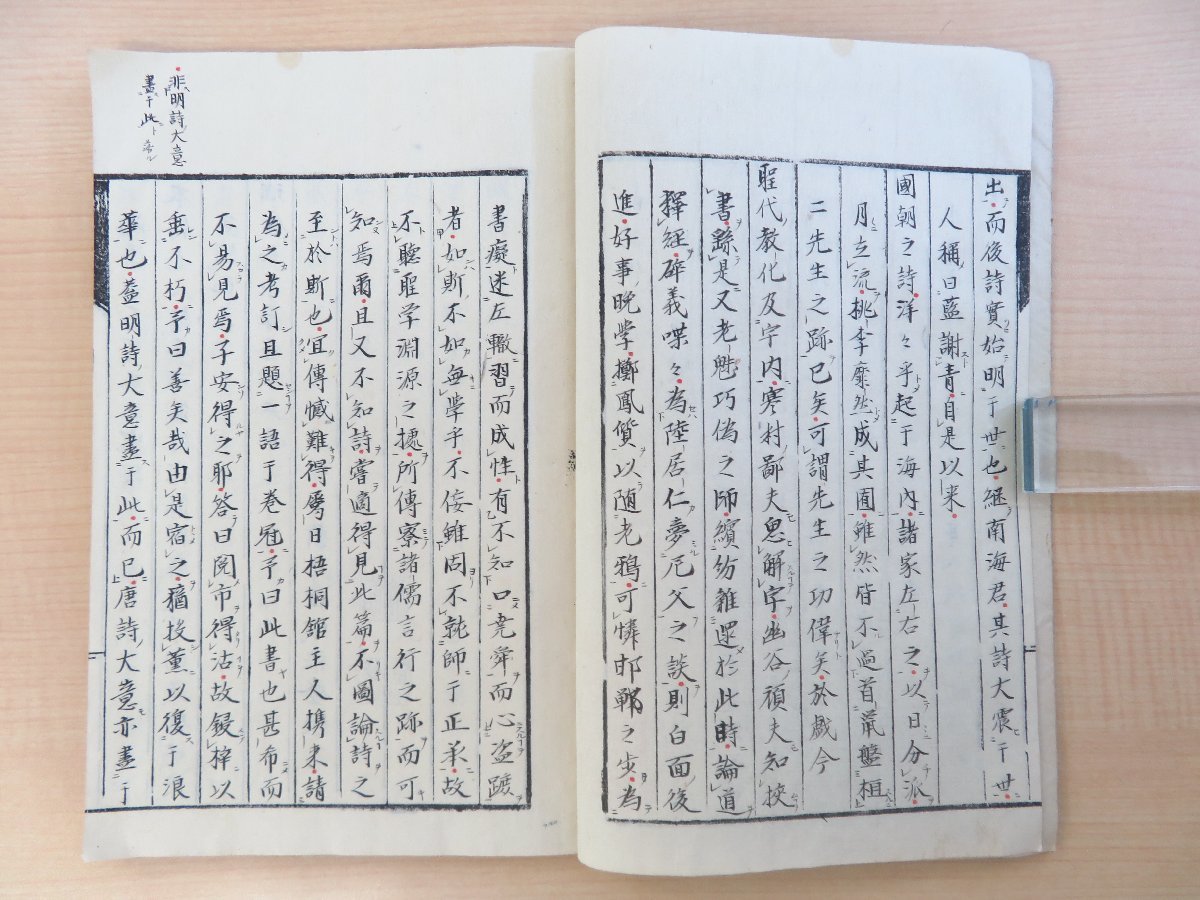 出而後詩實始明于世也繼南海君其詩大震于世
人稱曰藍謝青自是以来
國朝之詩洋々乎起于海内諸家左右之以日分派
月立流桃李靡然成其園雖然皆不過首鼠盤桓
二先生之跡已矣可謂先生之功偉矣於戯今
聖代教化及宇内寒村鄙夫思解字幽谷頑夫知挾
書繇是又老魅巧偽之師繽紛雜還於此時論道
釋經碎義喋々為陸居仁夢尼父之談則白面後
進好事晩学擲鳳質以随老鴉可憐邯鄲之歩為
書癡迷左轍習而成性有不知口尭舜而心盗蹠
者如斯不如無學乎不佞雖固不就師于正業故
不聽聖学淵源之據所傳察諸儒言行之跡而可
知焉爾且又不知詩嘗適得見此篇不圖論詩之
至於斯也宜傳憾難得屬日梧桐館主人携来請
為之考訂且題一語于巻冠予曰此書也甚希而
不易見焉子安得之耶答曰閲市得沽故鋟梓以
垂不朽予曰善矣哉由是宿之蕕投薫以復于浪
華也蓋明詩大意盡于此而已唐詩大意亦盡于
非明詩大意
盡于此